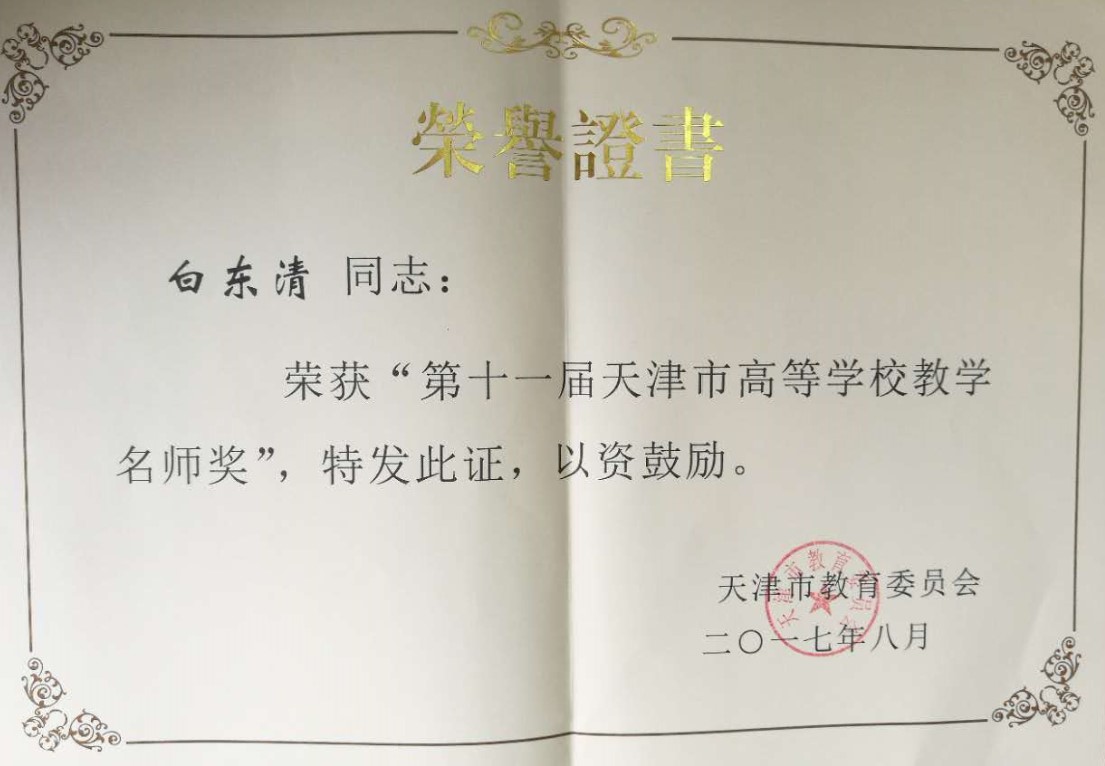 榮譽證書
白东清 同志：
荣获“第十一届天津市高等学校教学
名师奖”，特发此证，以资鼓励。
天津市教育委员会
二〇一七年八月
天津市教育委员会